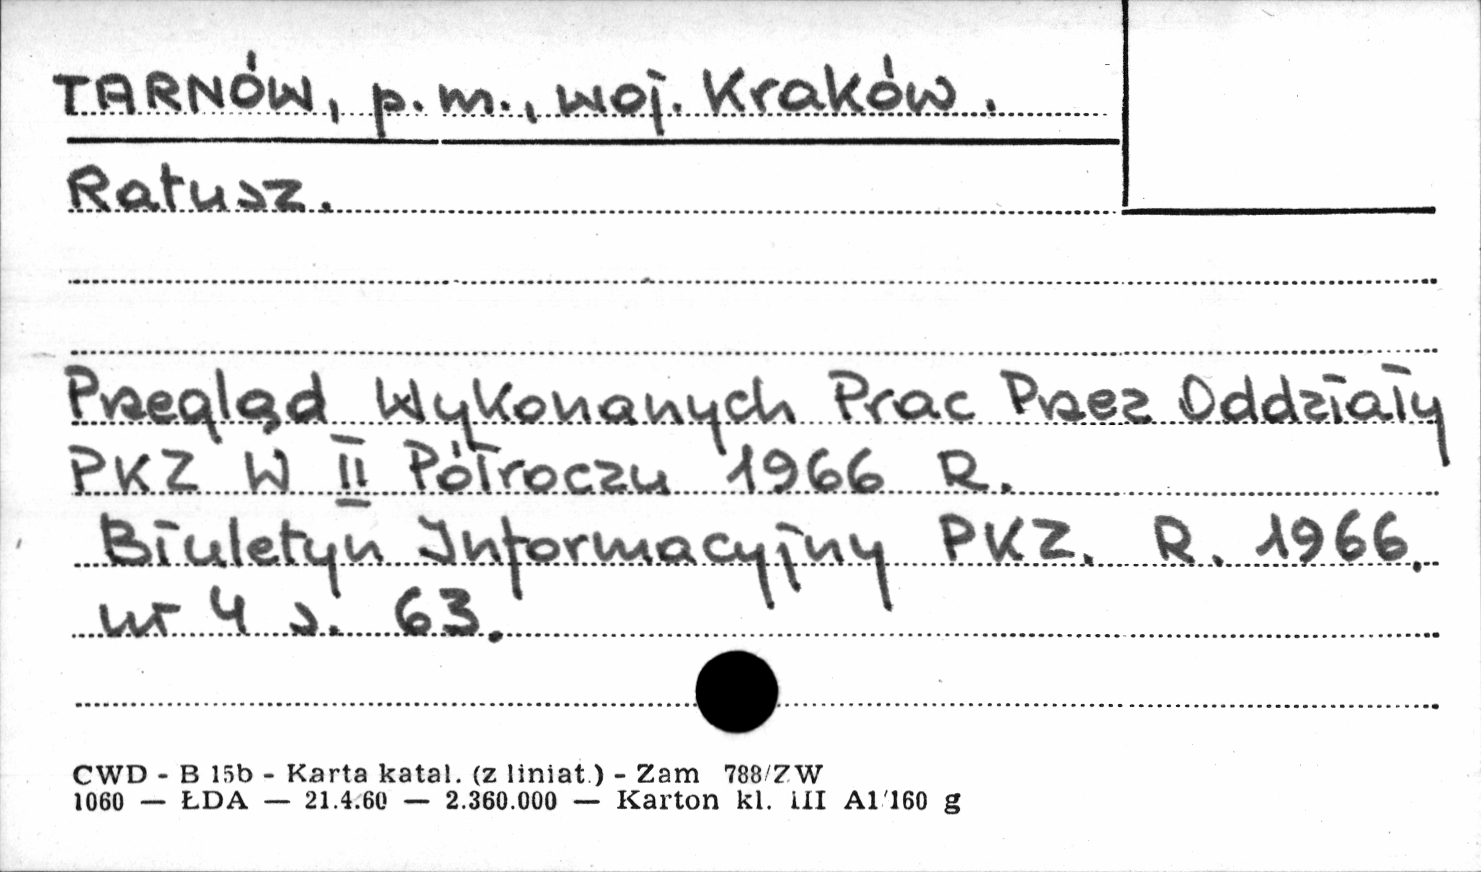 TARNÓW, p.m., woj. Kraków.
Ratusz.
Przegląd Wykonanych Prac Przez Oddziały
PKZ W II Półroczu 1966 R.
Biuletyn Informacyjny PKZ. R. 1966.
nr 4 s. 63.
CWD - B 15b - Karta katal. (z liniat.) - Zam 788/ZW
1060 — ŁDA — 21.4.60 — 2.360.000 — Karton kl. III A1/160 g